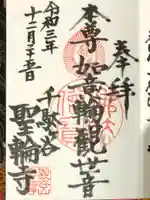 奉拝
本尊如意輪観世音
千駄谷
聖輪寺
令和三年
十二月二十五日